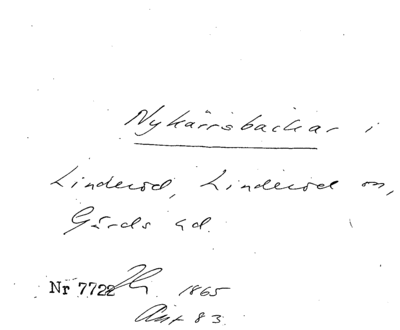 Nykärrsbackar i
Linderöd, Linderöd sn,
Gärds hd.
Nr 7722 1865
Ant 83